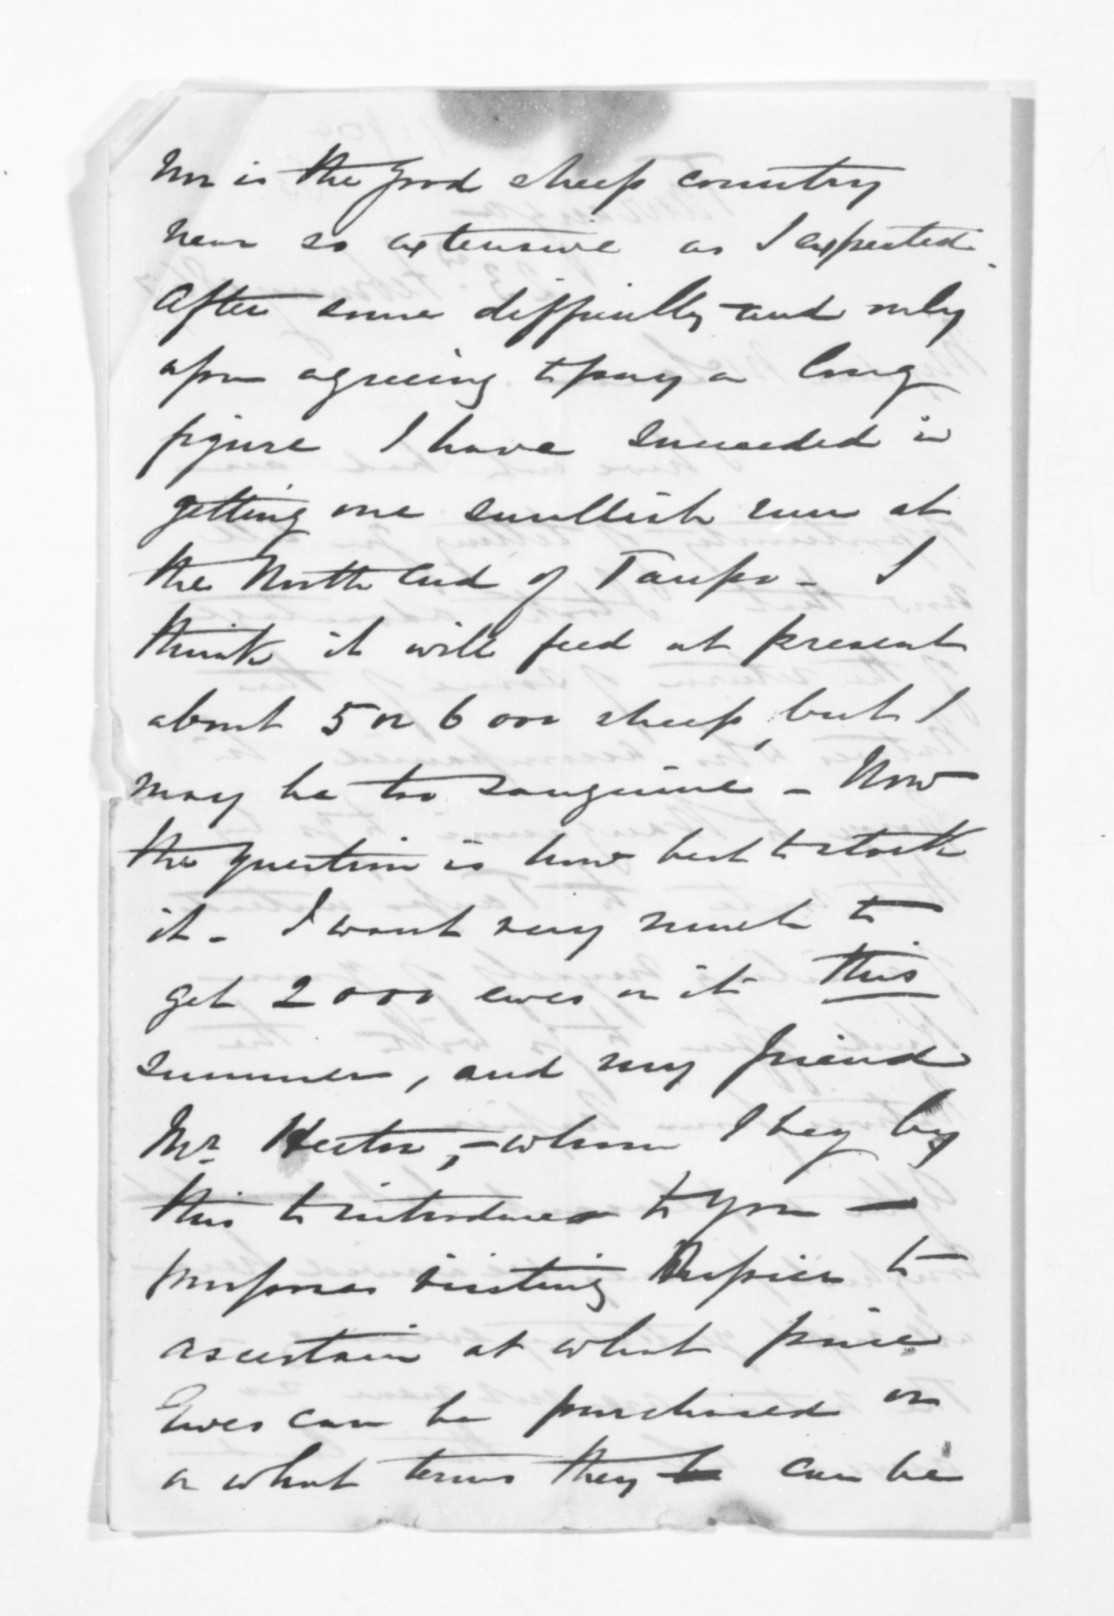 Nor is the good sheep country
near so extensive as I expected.
After some difficulty and only
upon agreeing to pay a long
figure I have succeeded in
getting one smallish run at
the North end of Taupo - I
think it will feed at present
about 5 or 6 000 sheep, but I
may be too sanguine - Now
the question is how best to stock
it - I want very much to
get 2000 ewes on it this
summer, and my friend
Mr. Hector, - whom I beg by
this to introduce to you -
purposes visiting Napier to
ascertain at what price
Ewes can be purchased or
on what terms they can be